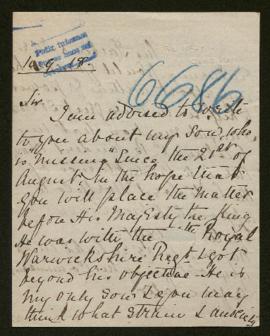 6686
Sir
I am advised to write
to you about my Son, who
is "missing" since the 21st of
August, in the hope that
you will place the matter
before His Majesty the King
He was with the Royal
Warwickshire Regt & got
beyond his objective. He is
my only Son & you may
think what strain & anxiety